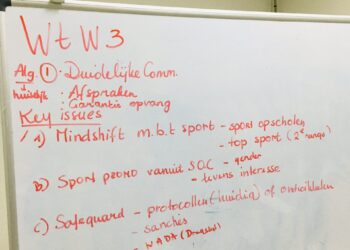 WtW 3
Alg. ① · Duidelijke Comm.
huishoudelijk · Afspraken
· Garantie opvang
Key issues
A) Mindshift m.b.t sport - sport op scholen
- top sport (2e rangs)
B) Sport promo vanuit SOC - gender
- tevens interesse
C) Safeguard - protocollen (huidig) of ontwikkelen
- sancties
- NADA